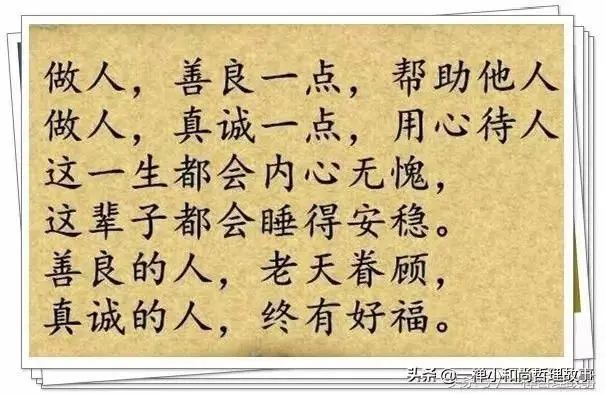 做人，善良一点，帮助他人
做人，真诚一点，用心待人
这一生都会内心无愧，
这辈子都会睡得安稳。
善良的人，老天眷顾，
真诚的人，终有好福。
头条 @一禅小和尚哲理故事